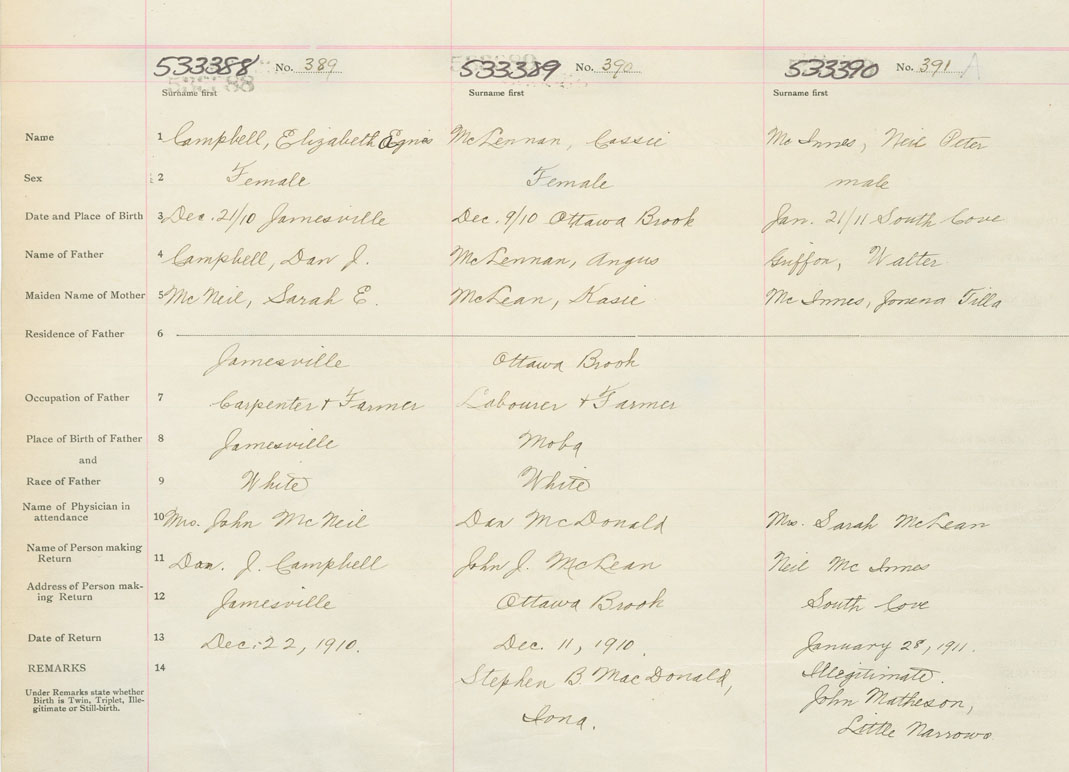 533388 No. 389 533389 No. 390 533390 No. 391 A
Surname first Surname first Surname first
Name 1 Campbell, Elizabeth Egnis McLennan, Cassie McInnes, Neil Peter
Sex 2 Female Female male
Date and Place of Birth 3 Dec. 21/10 Jamesville Dec. 9/10 Ottawa Brook Jan. 21/11 South Cove
Name of Father 4 Campbell, Dan J. McLennan, Angus Griffon, Walter
Maiden Name of Mother 5 McNeil, Sarah E. McLean, Kasie McInnes, Jonena Tilla
Residence of Father 6
Jamesville Ottawa Brook
Occupation of Father 7 Carpenter + Farmer Labourer + Farmer
Place of Birth of Father 8 Jamesville Moba
and
Race of Father 9 White White
Name of Physician in
attendance 10 Mrs. John McNeil Dan McDonald Mrs. Sarah McLean
Name of Person making
Return 11 Dan. J. Campbell John J. McLean Neil McInnes
Address of Person mak-
ing Return 12 Jamesville Ottawa Brook South Cove
Date of Return 13 Dec. 22, 1910. Dec. 11, 1910. January 28, 1911.
REMARKS 14 Stephen B MacDonald, Illegitimate.
Under Remarks state whether
Birth is Twin, Triplet, Ille-
gitimate or Still-birth.
Iona. John Matheson,
Little Narrows